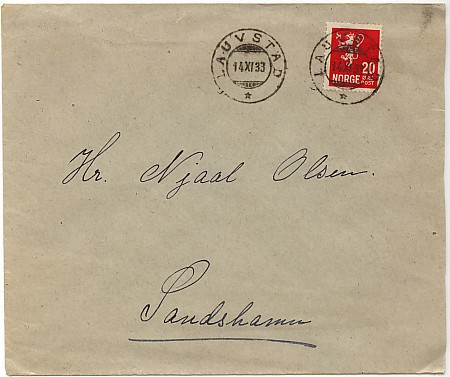 LAUVSTAD
14 XI 33
LAUVSTAD
20
NORGE
POST
Hr. Njaal Olsen.
Sandshamn